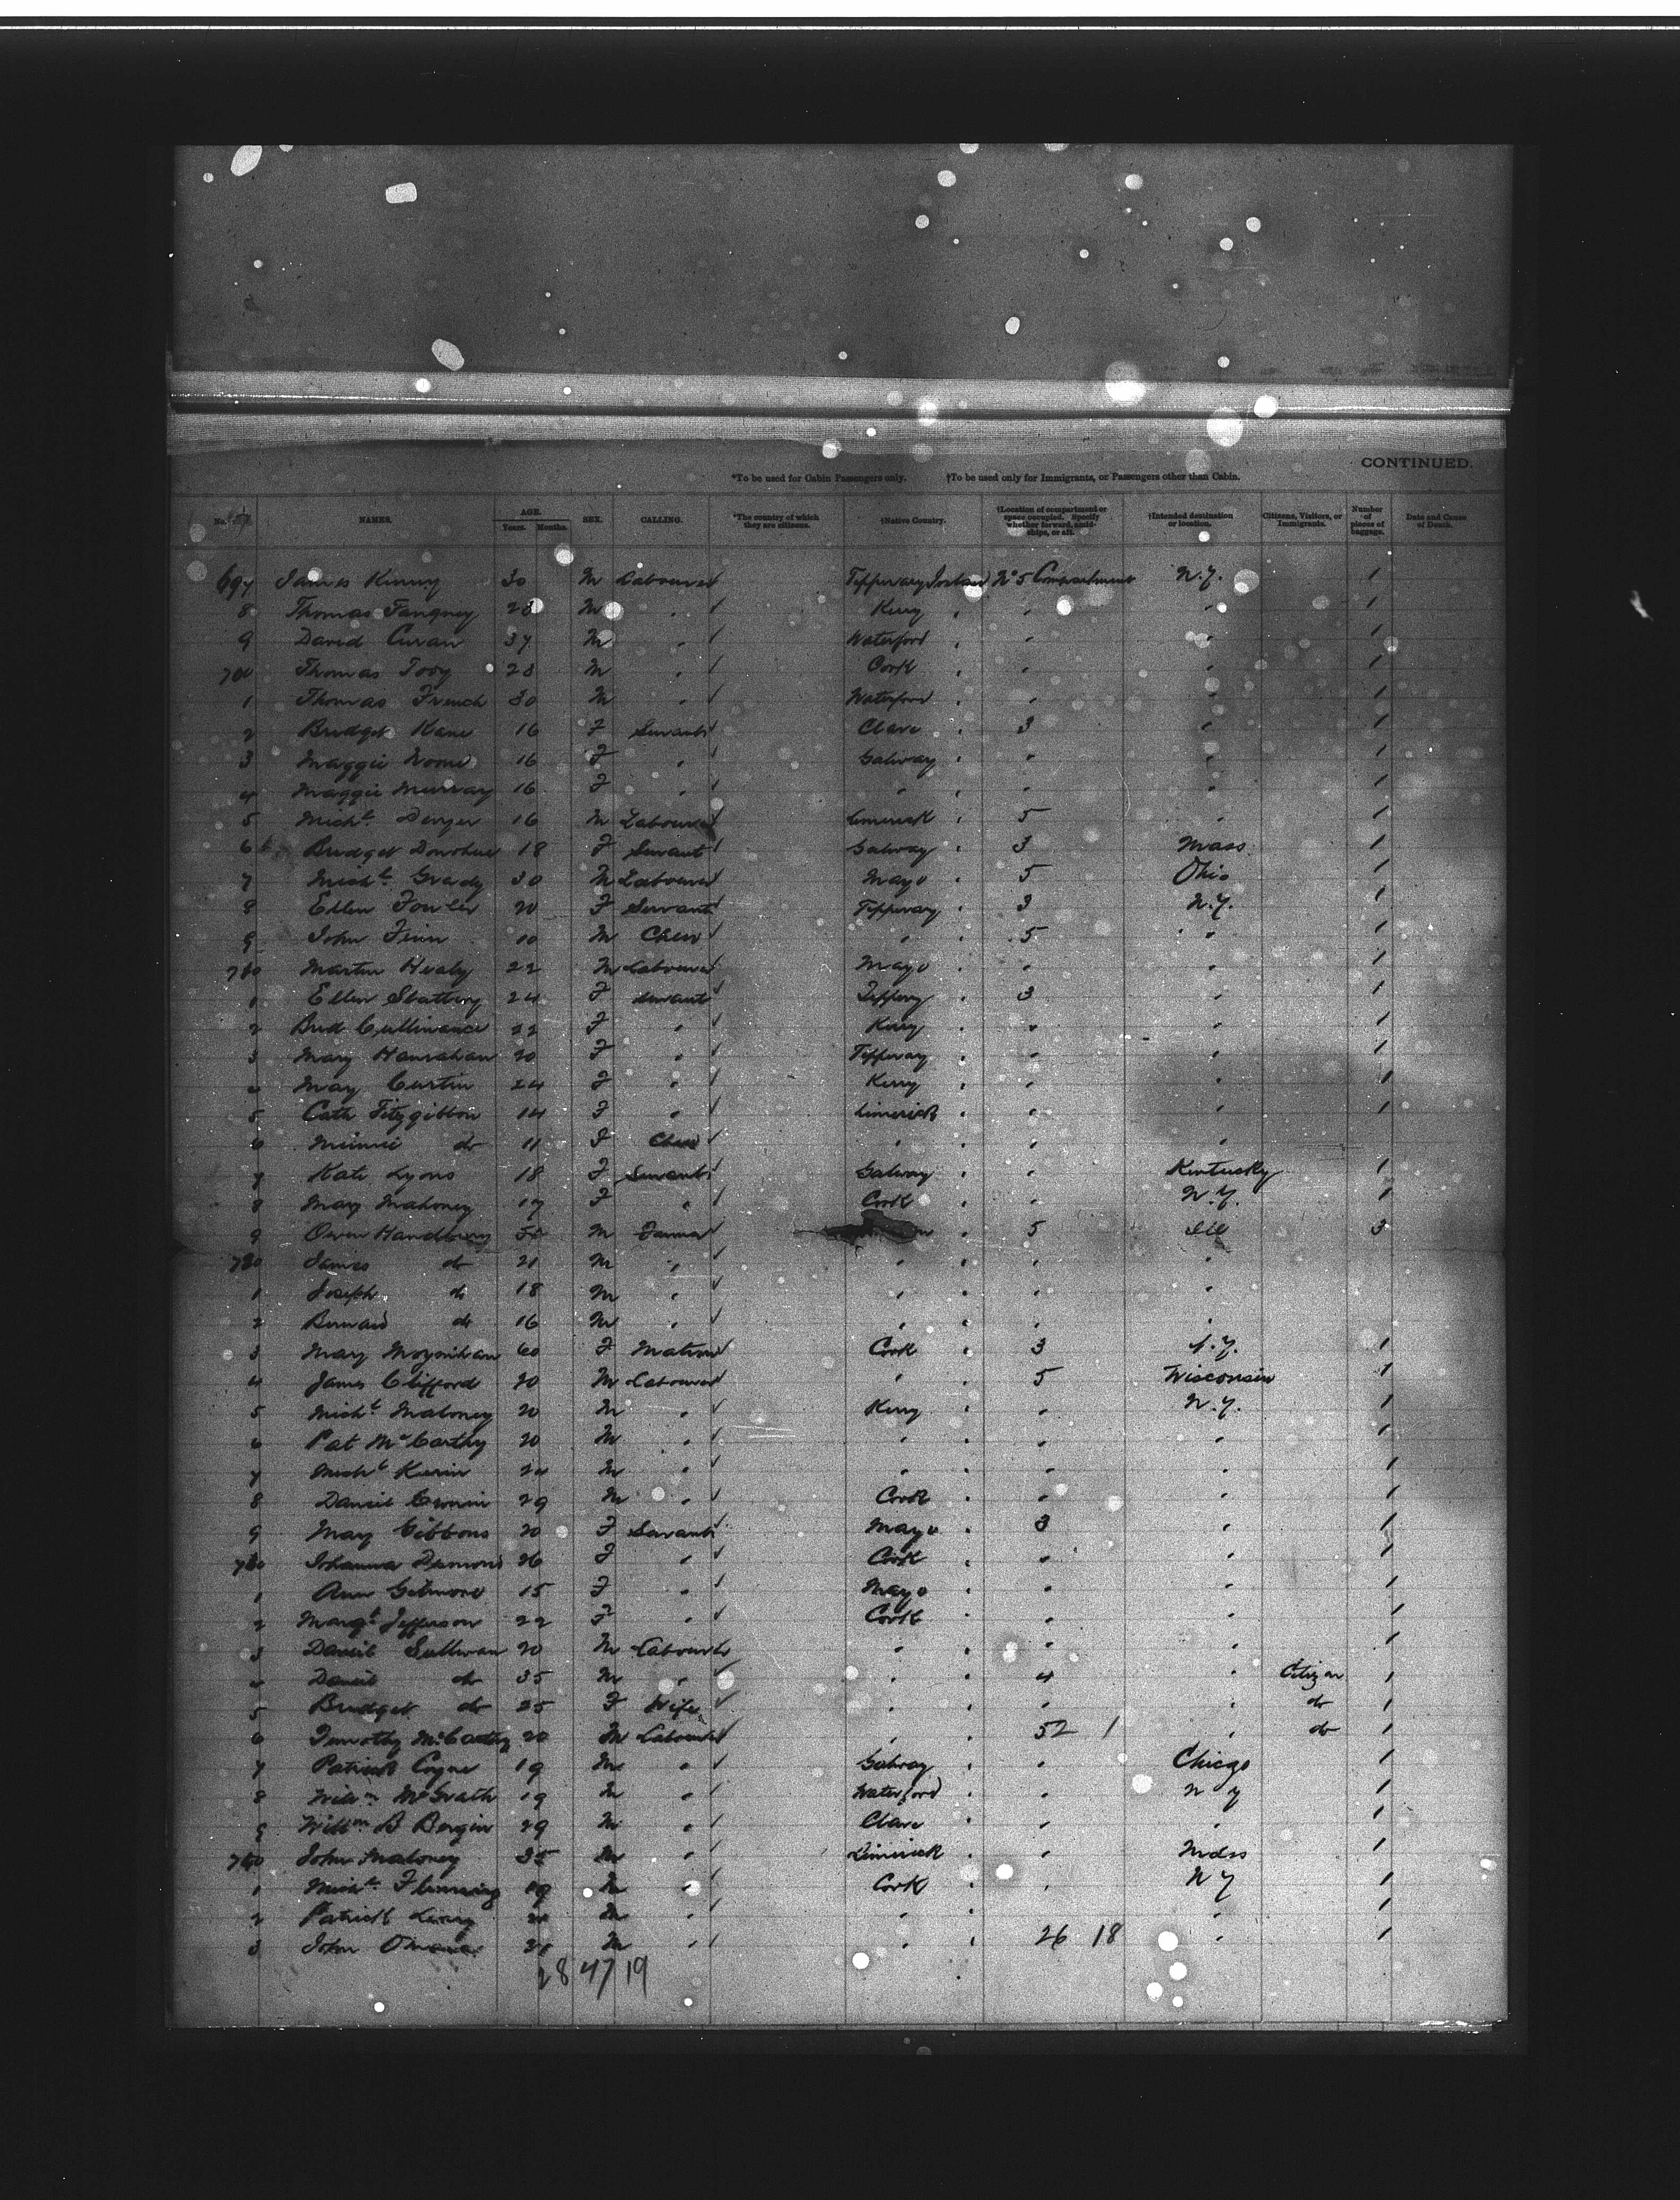 CONTINUED.
*To be used for Cabin Passengers only. †To be used only for Immigrants, or Passengers other than Cabin.
No. NAMES. AGE. Years. Months. SEX. CALLING. *The country of which they are citizens. †Native Country. †Location of compartment or space occupied. Specify whether forward, amidships, or aft. †Intended destination or location. Citizens, Visitors, or Immigrants. Number of pieces of baggage. Date and Cause of Death.
697 James 30 M Labourer Tipperary Ireland No 5 Compartment N.Y. 1
8 Thomas 28 M " Kerry " " " 1
9 David Curan 37 M " Waterford " " " 1
700 Thomas 28 M " Cork " " " 1
1 Thomas French 30 M " Waterford " " " 1
2 Bridget Kane 16 F Servant Clare " 3 " 1
3 Maggie 16 F " Galway " " " 1
4 Maggie Murray 16 F " " " " " 1
5 Micht 16 M Labourer Limerick " 5 " 1
6 Bridget Donohue 18 F Servant Galway " 3 Mass 1
7 Michl Grady 30 M Labourer Mayo " 5 Ohio 1
8 Ellen Fowler 20 F Servant Tipperary " 3 N.Y. 1
9 John Finn 10 M " " 5 " 1
710 Martin Healy 22 M Labourer Mayo " " " 1
1 Ellen Slattery 24 F Servant " 3 " 1
2 Brid Cullinance 22 F " Kerry " " " 1
3 Mary Hanrahan 20 F " Tipperary " " " 1
4 May Curtin 24 F " Kerry " " " 1
5 Cath Fitzgibbon 14 F " Limerick " " " 1
6 Minnie do 11 F " " " "
7 Kate Lyons 18 F Servant Galway " " Kentucky 1
8 Mary Mahoney 17 F " Cork " " N.Y. 1
9 Owen M Farmer " 5 Ill 3
720 James do 21 M " " " " "
1 Joseph do 18 M " " " " "
2 Bernard do 16 M " " " " "
3 Mary Moynihan 60 F Matron Cork " 3 N.Y. 1
4 James Clifford 20 M Labourer " " 5 Wisconsin 1
5 Michl Maloney 20 M " Kerry " " N.Y. 1
6 Pat McCarthy 20 M " " " " " 1
7 Michl 24 M " " " " " 1
8 Daniel Cronin 29 M " Cork " " " 1
9 May Gibbons 20 F Servant Mayo " 3 " 1
730 Johanna 26 F " Cork " " " 1
1 Ann Gilmore 15 F " Mayo " " " 1
2 Margt Jefferson 22 F " Cork " " " 1
3 Daniel Sullivan 20 M Labourer " " " " 1
4 Daniel do 35 M " " " 4 " Citizen 1
5 Bridget do 25 F Wife " " " " do 1
6 Timothy McCarthy 20 M Labourer " " 52 1 " do 1
7 Patrick Coyne 19 M " Galway " " Chicago 1
8 Willm McGrath 19 M " Waterford " " N Y 1
9 Willm B Bergin 29 M " Clare " " " 1
740 John Maloney 35 M " Limerick " " 1
1 Michl Flemming 19 M " Cork " " N Y 1
2 Patrick Leary M " " " " 1
3 John M " " " 26 18 " 1
28 47 19